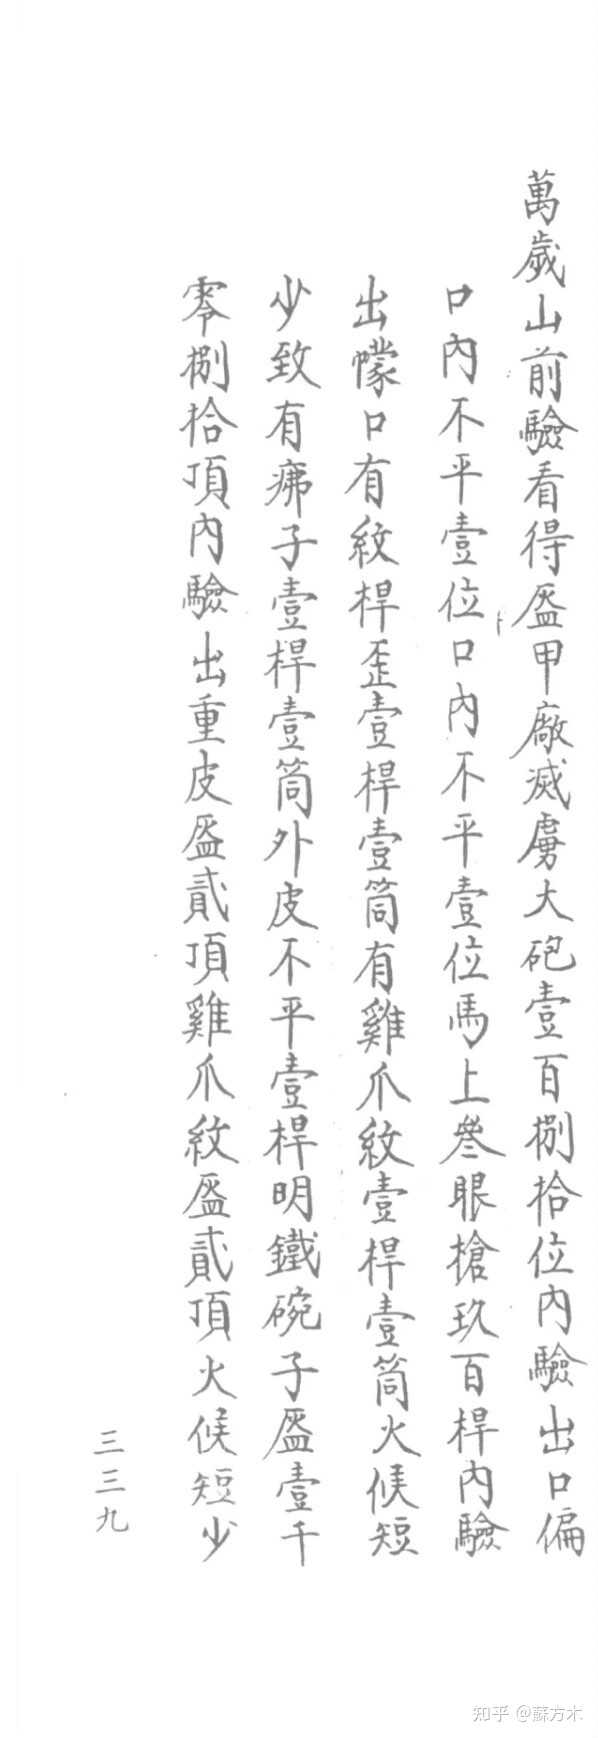 萬歲山前驗看得盔甲廠滅虜大砲壹百捌拾位內驗出口偏
口內不平壹位口內不平壹位馬上叄眼槍玖百桿內驗
出幪口有紋桿歪壹桿壹筒有雞爪紋壹桿壹筒火候短
少致有痹子壹桿壹筒外皮不平壹桿明鐵碗子盔壹千
零捌拾頂內驗出重皮盔貳頂雞爪紋盔貳頂火候短少
三三九
知乎 @蘇方木